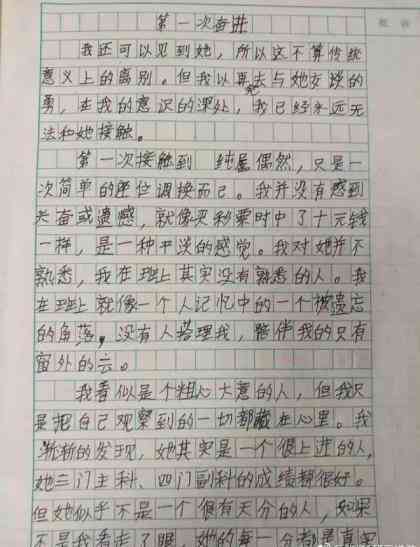 第一次奋进
我还可以见到她，所以这不算传统
意义上的离别。但我以再去与她交谈的
勇，在我的意识的深处，我已经永远无
法和她接触。
第一次接触到 纯属偶然，只是一
次简单的座位调换而已。我并没有感到
兴奋或遗憾，就像买彩票时中了十元钱
一样，是一种平淡的感觉。我对她并不
熟悉，我在班上其实没有熟悉的人。我
在班上就像一个人记忆中的一个被遗忘
的角落，没有人搭理我，陪伴我的只有
窗外的云。
我看似是个粗心大意的人，但我只
是把自己观察到的一切都藏在心里。我
渐渐的发现，她其实是一个很上进的人，
她三门主科、四门副科的成绩都很好。
但她似乎不是一个很有天分的人，如果
不是我看走了眼，她的每一分都是真